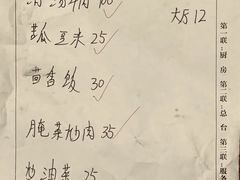 大厅12
瓜豆米 25
茴香饭 30
腌菜炒肉 35
炒油菜 25
第一联:厨房 第二联:总台 第三联:服务